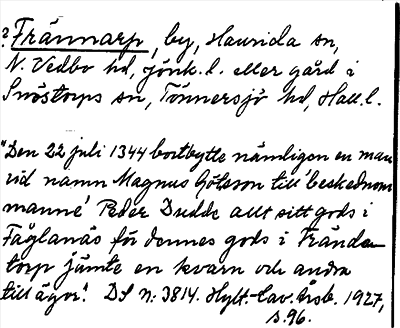 ? Frännarp, by, Haurida sn,
N. Vedbo hd, jönk. l. eller gård i
Snöstorps sn, Tönnersjö hd, Hall. l.
"Den 22 juli 1344 bortbytte nämligen en man
vid namn Magnus Göteson till 'beskednom
manne' Peder Dudde allt sitt gods i
Fåglanäs för dennes gods i Frända-
torp jämte en kvarn och andra
tillägor". DS n: 3814. Hylt.-Cav. Årsb. 1927,
s. 96.